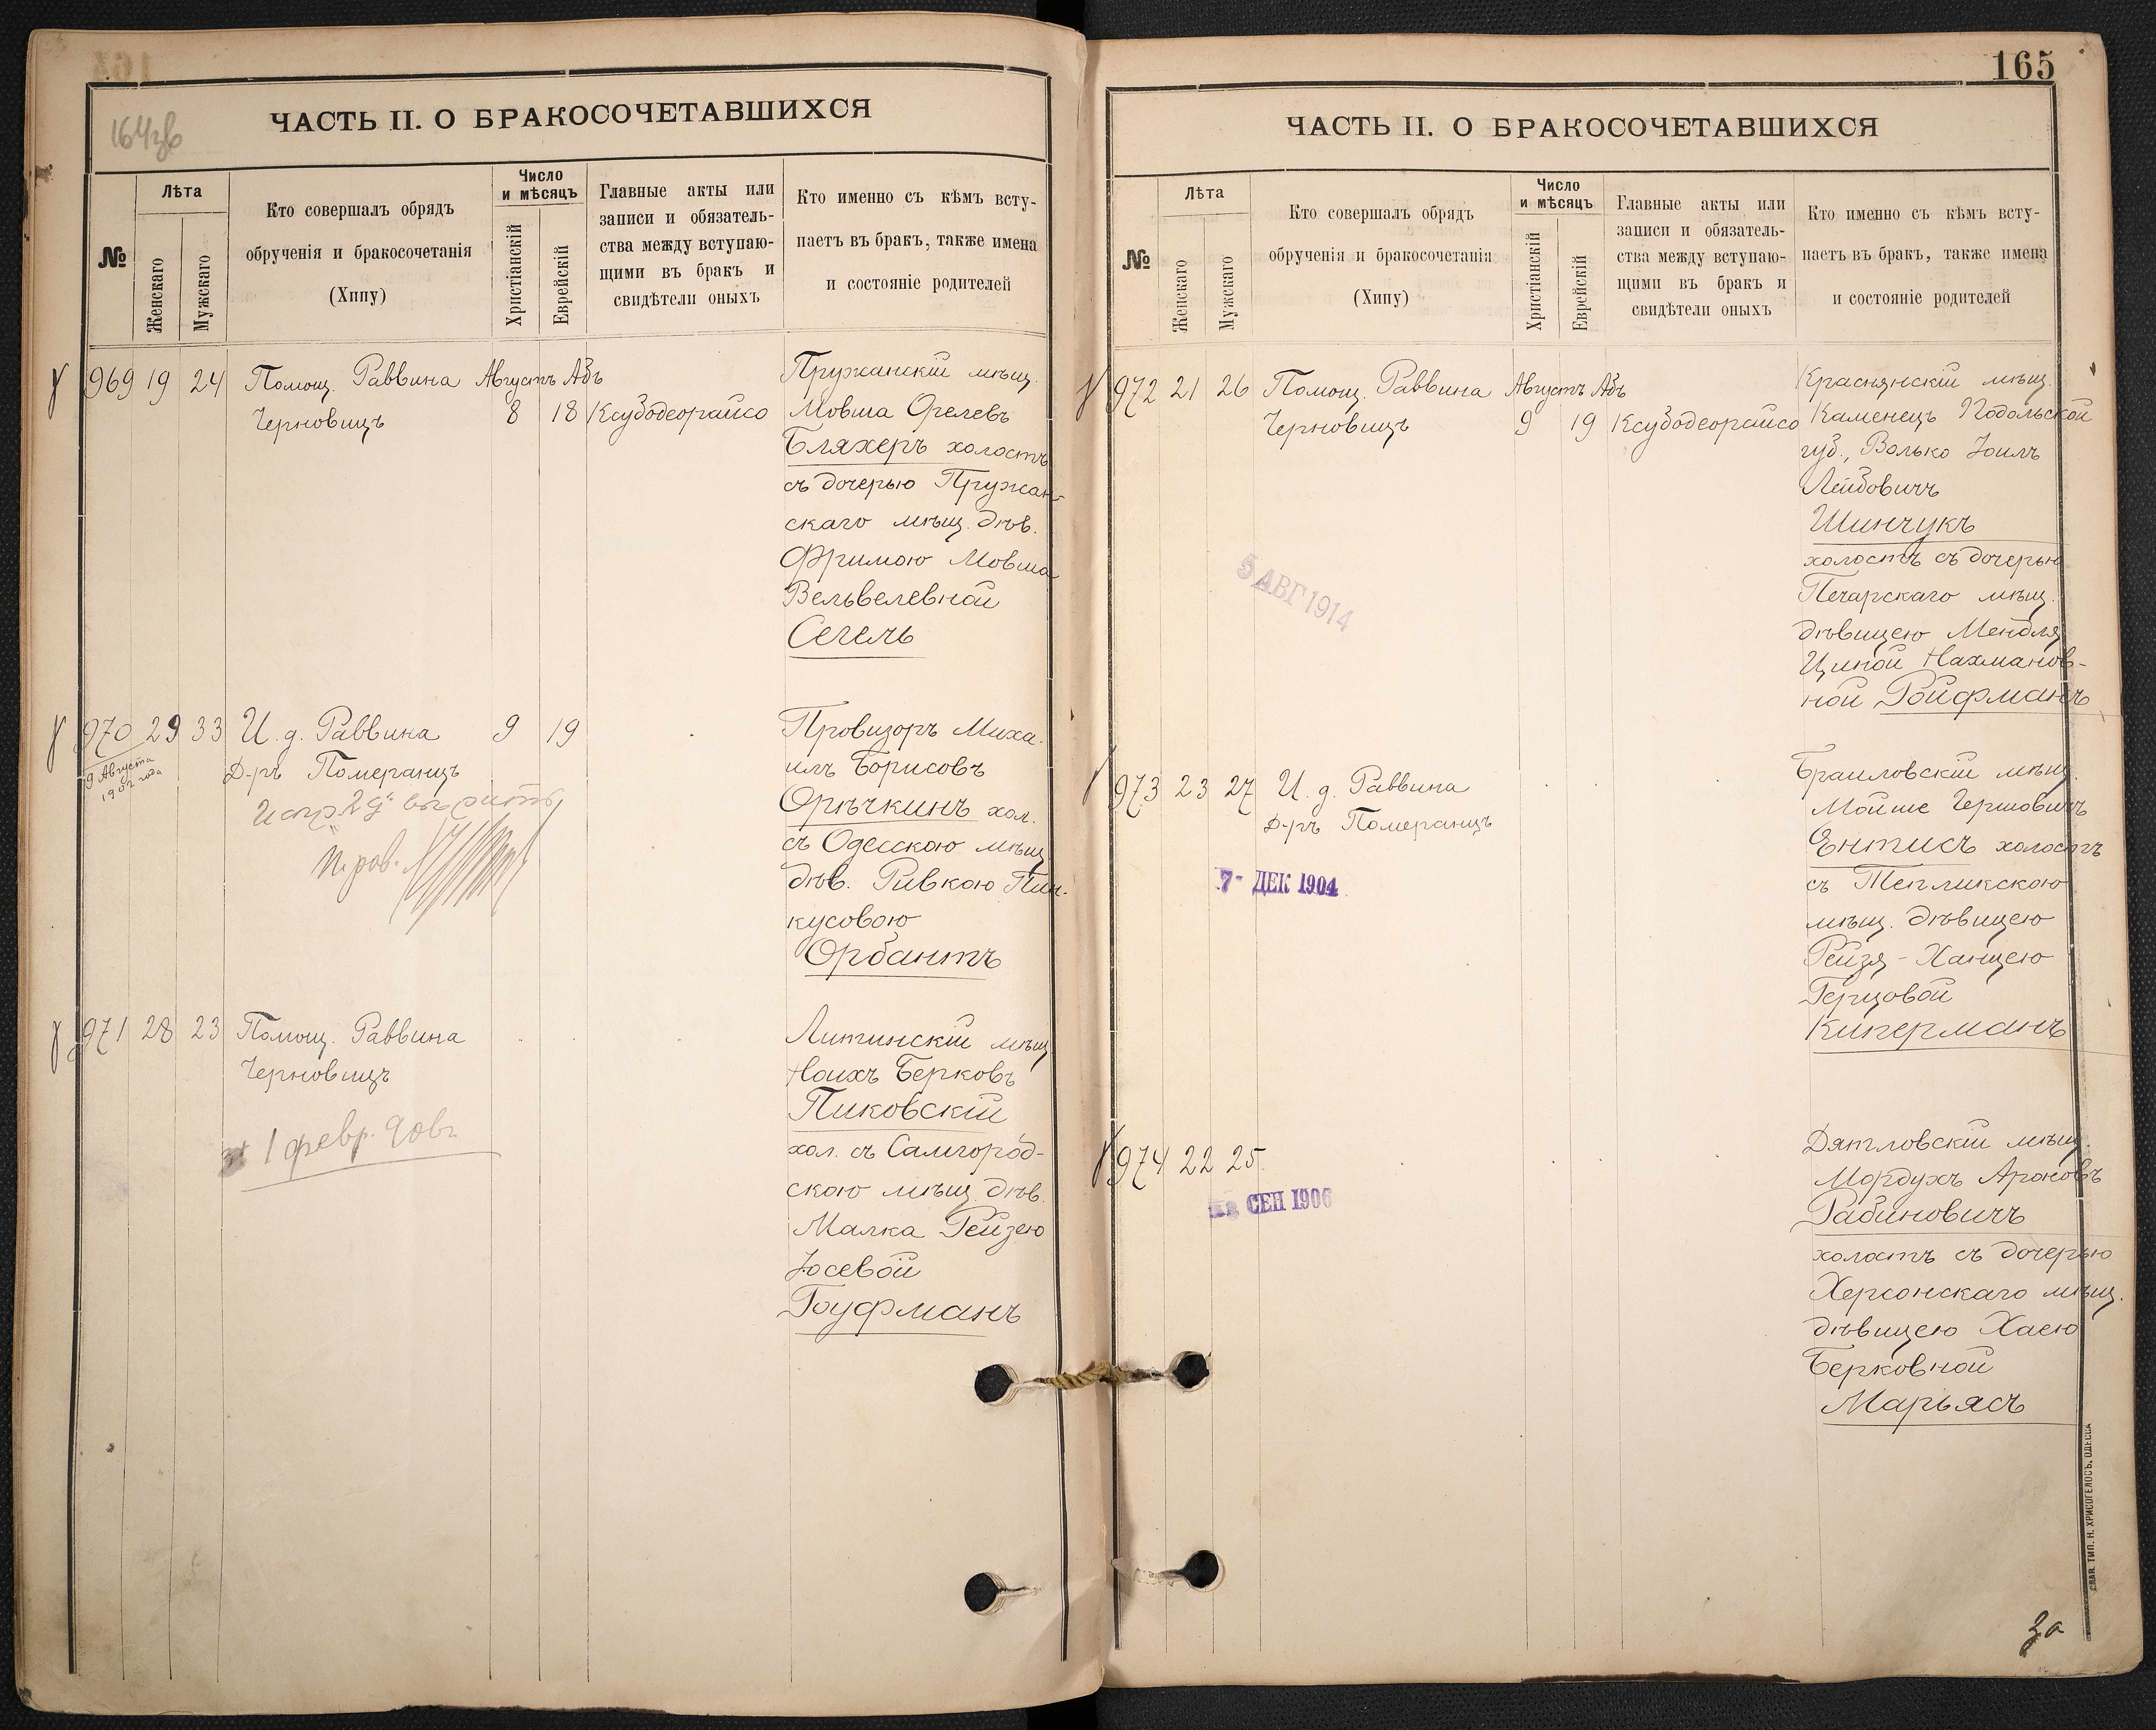 164зв
ЧАСТЬ II. О БРАКОСОЧЕТАВШИХСЯ
№
Лѣта
Женскаго
Мужскаго
Кто совершалъ обрядъ
обрученія и бракосочетанія
(Хипу)
Число
и мѣсяцъ
Христіанскій
Еврейскій
Главные акты или
записи и обязатель-
ства между вступаю-
щими въ бракъ и
свидѣтели оныхъ
Кто именно съ кѣмъ всту-
паетъ въ бракъ, также имена
и состояніе родителей
969 19 24 Помощ. Раввина Августъ Абъ
Черновицъ 8 18 Ксубодеорайсо
Пружанскій мѣщ.
Мовша Орелевъ
Бляхеръ холостъ
съ дочерью Пружан-
скаго мѣщ. дѣв.
Фримою Мовша
Вельвелевной
Сегель
970 29 33 И. д. Раввина 9 19
Д-ръ Померанцъ
9 Августа
1902 года
Провизоръ Миха-
илъ Борисовъ
Орѣчкинъ хол.
съ Одесскою мѣщ.
дѣв. Ривкою Пин-
кусовою
Орбантъ
971 28 23 Помощ. Раввина
Черновицъ
1 февр.
Литинскій мѣщ.
Ноихъ Берковъ
Пиковскій
хол. съ Самгород-
скою мѣщ. дѣв.
Малка Рейзею
Іосевой
Гоуфманъ
165
ЧАСТЬ II. О БРАКОСОЧЕТАВШИХСЯ
№
Лѣта
Женскаго
Мужскаго
Кто совершалъ обрядъ
обрученія и бракосочетанія
(Хипу)
Число
и мѣсяцъ
Христіанскій
Еврейскій
Главные акты или
записи и обязатель-
ства между вступаю-
щими въ бракъ и
свидѣтели оныхъ
Кто именно съ кѣмъ всту-
паетъ въ бракъ, также имена
и состояніе родителей
972 21 26 Помощ. Раввина Августъ Абъ
Черновицъ 9 19 Ксубодеорайсо
Краснянскій мѣщ.
Каменецъ Подольской
губ., Волько Іоилъ
Лейбовичъ
Шинчукъ
холостъ съ дочерью
Печарскаго мѣщ.
дѣвицею Мендля
Циной Нахманов-
ной Ройфманъ
5 АВГ 1914
973 23 27 И. д. Раввина
Д-ръ Померанцъ
7- ДЕК 1904
Браиловскій мѣщ.
Мойше Гершовичъ
Ентисъ холостъ
съ Тепликскою
мѣщ. дѣвицею
Рейзя-Ханцею
Герцовой
Киперманъ
974 22 25
СЕН 1906
Дятловскій мѣщ.
Мордухъ Ароновъ
Рабиновичъ
холостъ съ дочерью
Херсонскаго мѣщ.
дѣвицею Хаею
Берковной
Марьясъ
СЛАВ. ТИП. Н. ХРИСОГЕЛОСЪ, ОДЕССА